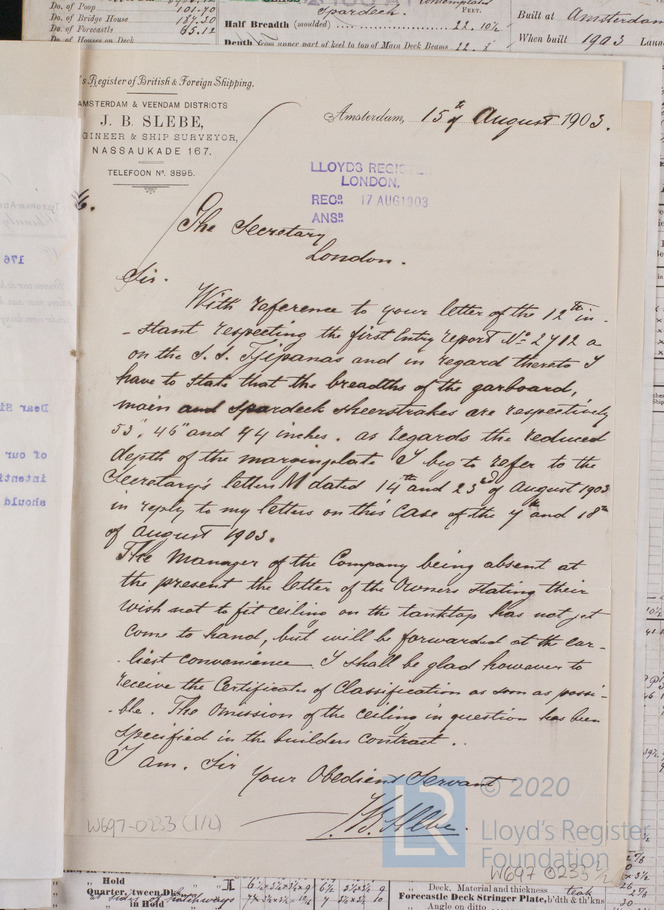 Do. of Poop
101.70
Do. of Bridge House
187.30
Do. of Forecastle
65.12
Do. of Houses on Deck
Spardeck.
FEET.
Half Breadth (moulded)
22. 10½
Depth from upper part of keel to top of Main Deck Beams
Built at Amsterdam
When built 1903
's Register of British & Foreign Shipping.
AMSTERDAM & VEENDAM DISTRICTS
J. B. SLEBE,
GINEER & SHIP SURVEYOR,
NASSAUKADE 167.
TELEFOON No. 3895.
Amsterdam, 15th of August 1903.
LLOYDS REGIS
LONDON.
RECD. 17 AUG 1903
ANSD.
The Secretary
London.
Sir.
With reference to your letter of the 12th in-
-stant respecting the first Entry report No. 2712 a
on the S.S. Tjipanas and in regard thereto I
have to state that the breadths of the garboard,
main and spardeck sheerstrakes are respectively
53", 46" and 44 inches. as regards the reduced
depth of the marginplate I beg to refer to the
Secretary's letters M dated 14th and 23rd of August 1903
in reply to my letters on this case of the 7th and 18th
of august 1903.
The Manager of the Company being absent at
the present the letter of the Owners stating their
wish not to fit ceiling on the tanktop has not yet
come to hand, but will be forwarded at the ear-
-liest convenience I shall be glad however to
receive the Certificates of Classification as soon as possi-
-ble. The Omission of the ceiling in question has been
specified in the builders contract..
I am. Sir
Your Obedient Servant
J.B. Slebe.
W697-0233 (1/2)
LR
© 2020
Lloyd's Register
Foundation
W697 0233 ½
176
Dear Si
of our
intenti
should
" Hold
Quarter, 'tween Dk
" in Hold
" Deck, Material and thickness teak
Forecastle Deck Stringer Plate, b'dth & th'kns
Angle on ditto